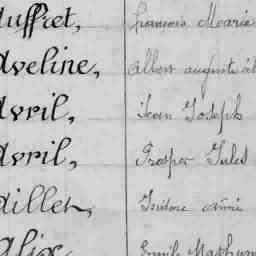 uffret, François Marie
Aveline, Albert auguste
Avril, Jean Joseph
Avril, Prosper Jules
aillet, Isidore aimé
Alix Emile Mathurin